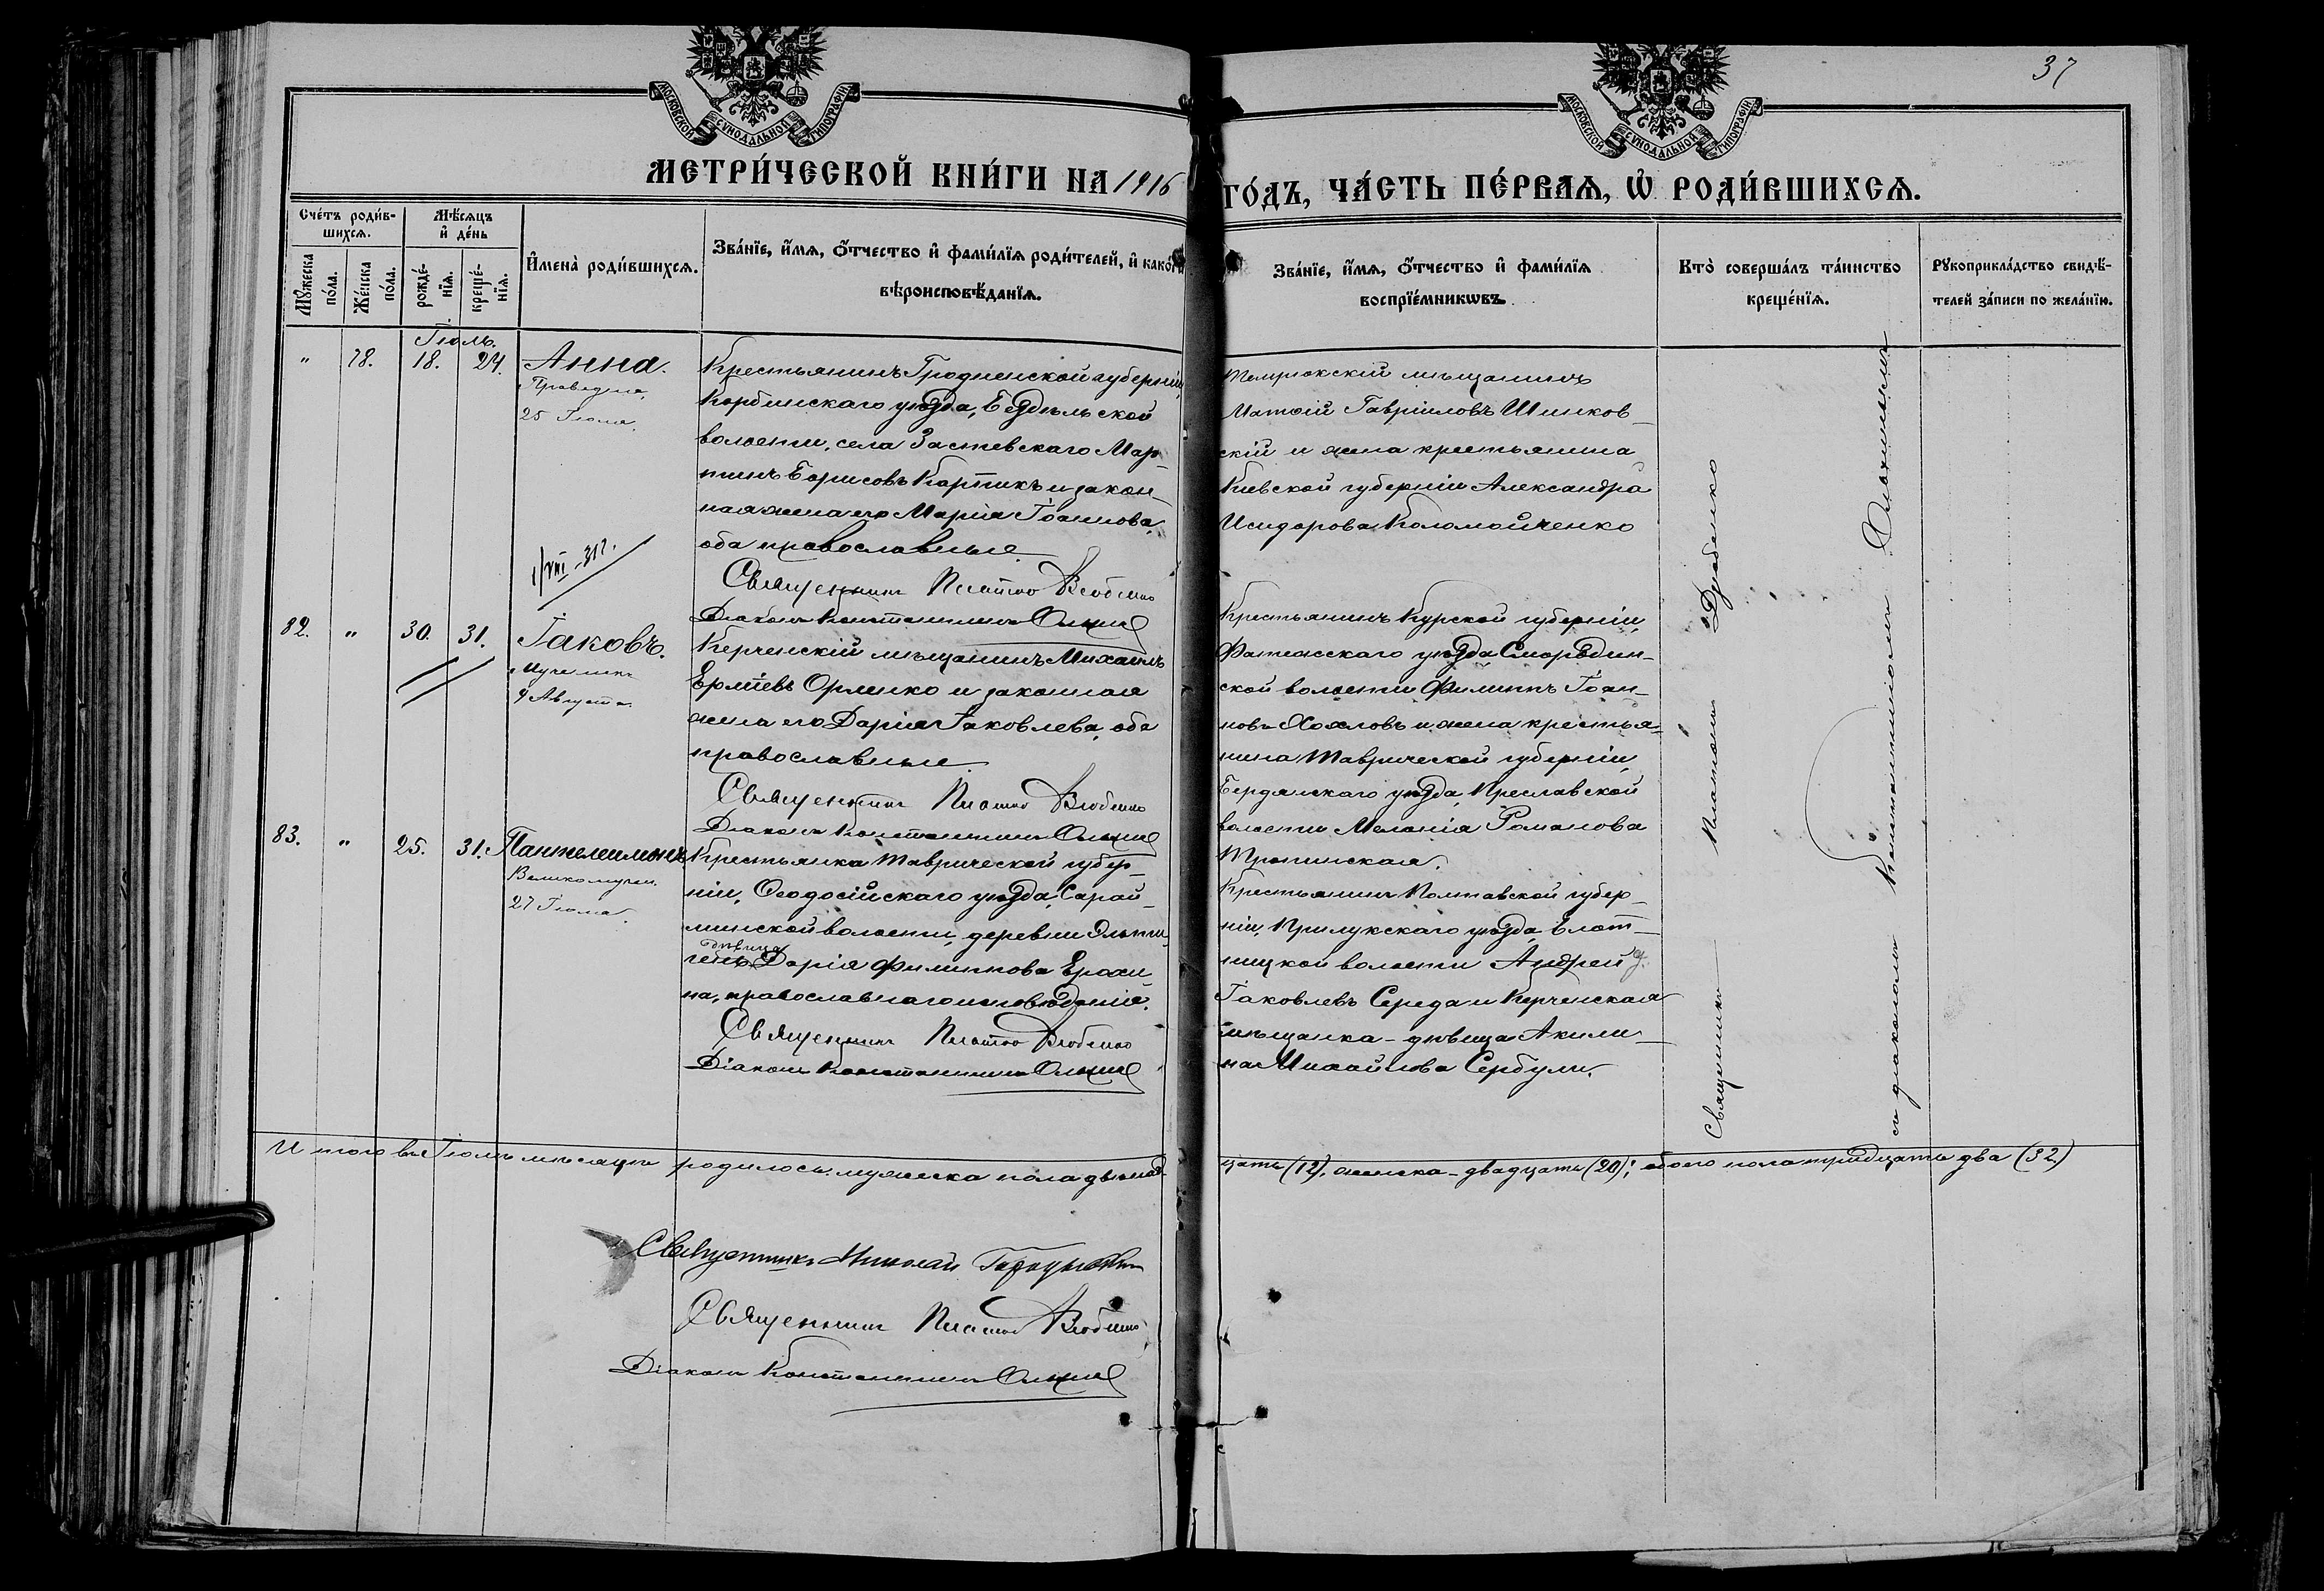 37
МОСКОВСКОЙ СУНОДАЛЬНОЙ ТИПОГРАФІИ
МОСКОВСКОЙ СУНОДАЛЬНОЙ ТИПОГРАФІИ
МЕТРИ́ЧЕСКОЙ КНИ́ГИ НА 1916 ГО́ДЪ, ЧА́СТЬ ПЕ́РВАѦ, Ѡ РОДИ́ВШИХСѦ.
Сче́тъ роди́в-
шихсѧ.
Мꙋ́жеска
по́ла.
Же́нска
по́ла.
Мѣ́сѧцъ
и҆ де́нь
рожде́-
нїѧ.
креще́-
нїѧ.
И҆мена̀ роди́вшихсѧ.
Зва́нїе, и҆́мѧ, ѻ҆́тчество и҆ фами́лїѧ роди́телей, и҆ како́гѡ
вѣроисповѣ́данїѧ.
Зва́нїе, и҆́мѧ, ѻ҆́тчество и҆ фами́лїѧ
воспрїе́мникѡвъ.
Кто̀ соверша́лъ та́инство
креще́нїѧ.
Рꙋкоприкла́дство свидѣ́-
телей за́писи по жела́нїю.
Іюль.
" 78. 18. 24. Анна.
Праведная,
25 Іюля.
Крестьянинъ Гродненской губерніи,
Кобринскаго уѣзда, Бездѣльской
волости, села Заставскаго Мар-
тинъ Борисовъ Картикъ и закон-
ная жена его Марія Іоаннова,
оба православные
Священникъ Платон
Діаконъ Константинъ
Темрюкскій мѣщанинъ
Матѳій Гавріиловъ Шинков-
скій и жена крестьянина
Кіевской губерніи Александра
Исидорова Коломойченко
82. " 30. 31. Іаковъ.
Мученикъ
4 Августа
Керченскій мѣщанинъ Михаилъ
Ермѣевъ Орленко и законная
жена его Дарія Іаковлева, оба
православные.
Священникъ Платон
Діаконъ Константинъ
Крестьянинъ Курской губерніи,
Фатежскаго уѣзда, Смородин-
ской волости Филиппъ Іоан-
новъ Хохловъ и жена крестья-
нина Таврической губерніи,
Бердянскаго уѣзда, Преславской
волости Меланія Романова
Тропинская.
83. " 25. 31. Пантелеимонъ
Великомучен.
27 Іюля.
Крестьянка Таврической губер-
ніи, Ѳеодосійскаго уѣзда, Сарай-
минской волости, деревни
дѣвица
Дарія Филиппова Ерохи-
на, православнаго исповѣданія.
Священникъ Платон
Діаконъ Константинъ
Крестьянинъ Полтавской губер-
ніи, Прилукскаго уѣзда,
волости Андрей
Іаковлевъ Середа и Керченская
мѣщанка-дѣвица Акили-
на Михайлова Сербули.
Священникъ Платонъ
съ діакономъ Константиномъ
Итого въ Іюлѣ мѣсяцѣ родилось: мужеска пола двѣнад-
цать (12), женска - двадцать (20); обоего пола тридцать два (32)
Священникъ Николай
Священникъ Платон
Діаконъ Константинъ